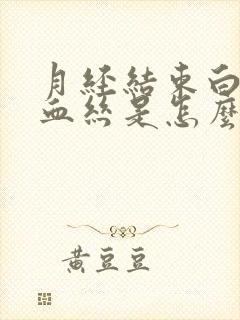 月經結束白
血絲是怎麼
黃豆豆